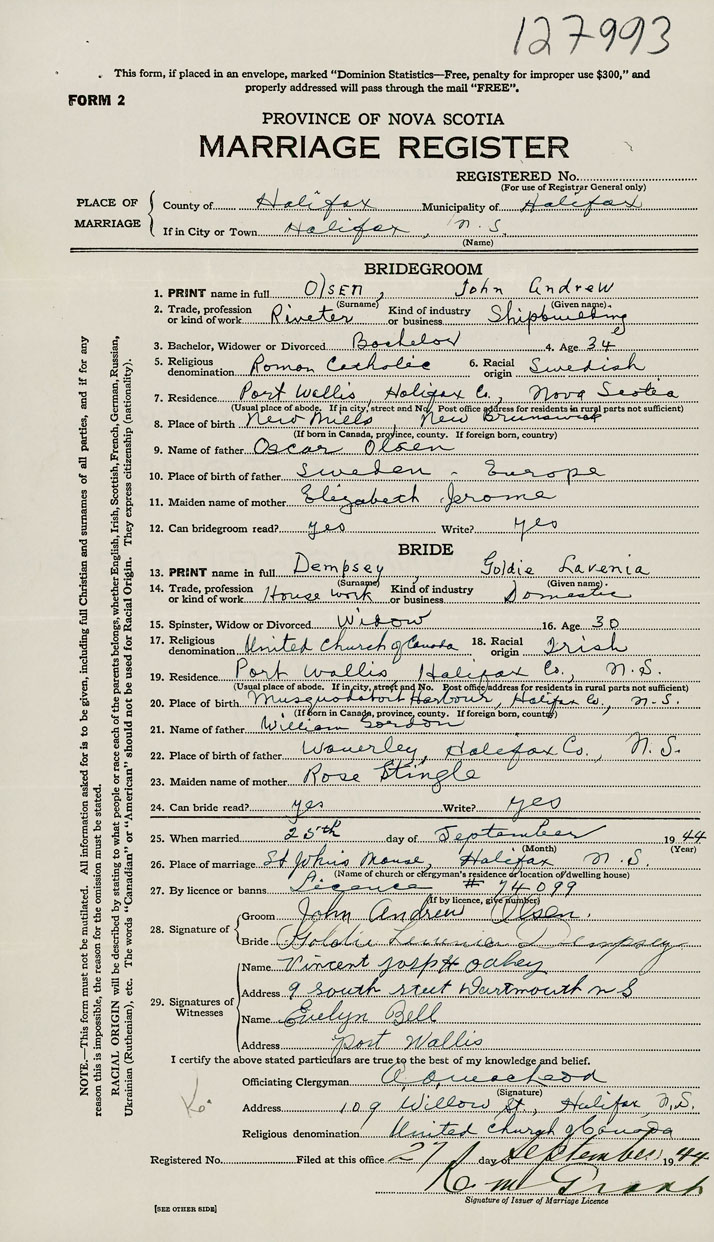 127993
This form, if placed in an envelope, marked "Dominion Statistics—Free, penalty for improper use $300," and
properly addressed will pass through the mail "FREE".
FORM 2
PROVINCE OF NOVA SCOTIA
MARRIAGE REGISTER
REGISTERED No.
(For use of Registrar General only)
PLACE OF MARRIAGE
County of Halifax Municipality of Halifax
If in City or Town Halifax, N.S.
(Name)
BRIDEGROOM
1. PRINT name in full Olsen, John Andrew
(Surname) (Given name)
2. Trade, profession or kind of work Riveter Kind of industry or business Shipbuilding
3. Bachelor, Widower or Divorced Bachelor 4. Age 34
5. Religious denomination Roman Catholic 6. Racial origin Swedish
7. Residence Port Wallis, Halifax Co., Nova Scotia
(Usual place of abode. If in city, street and No. Post office address for residents in rural parts not sufficient)
8. Place of birth New Mills New Brunswick
(If born in Canada, province, county. If foreign born, country)
9. Name of father Oscar Olsen
10. Place of birth of father Sweden - Europe
11. Maiden name of mother Elizabeth Jerome
12. Can bridegroom read? yes Write? yes
BRIDE
13. PRINT name in full Dempsey Goldie Lavenia
(Surname) (Given name)
14. Trade, profession or kind of work House work Kind of industry or business Domestic
15. Spinster, Widow or Divorced Widow 16. Age 30
17. Religious denomination United Church of Canada 18. Racial origin Irish
19. Residence Port Wallis Halifax Co., N.S.
(Usual place of abode. If in city, street and No. Post office address for residents in rural parts not sufficient)
20. Place of birth Musquodoboit Harbour, Halifax Co., N.S.
(If born in Canada, province, county. If foreign born, country)
21. Name of father William Gordon
22. Place of birth of father Waverley, Halifax Co., N.S.
23. Maiden name of mother Rose Stingle
24. Can bride read? yes Write? yes
25. When married 25th day of September 1944
(Month) (Year)
26. Place of marriage St Johns Manse, Halifax N.S.
(Name of church or clergyman's residence or location of dwelling house)
27. By licence or banns Licence # 74099
(If by licence, give number)
28. Signature of
Groom John Andrew Olsen.
Bride Goldie Dempsey
29. Signatures of Witnesses
Name Vincent Josph Oakey
Address 9 South street Dartmouth N S
Name Evelyn Bell
Address Port Wallis
I certify the above stated particulars are true to the best of my knowledge and belief.
Officiating Clergyman
(Signature)
Address 109 Willow St., Halifax, N.S.
Religious denomination United Church of Canada
Registered No. Filed at this office 27 day of September 1944
Signature of Issuer of Marriage Licence
[SEE OTHER SIDE]
NOTE.—This form must not be mutilated. All information asked for is to be given, including full Christian and surnames of all parties, and if for any
reason this is impossible, the reason for the omission must be stated.
RACIAL ORIGIN will be described by stating to what people or race each of the parents belongs, whether English, Irish, Scottish, French, German, Russian,
Ukrainian (Ruthenian), etc. The words "Canadian" or "American" should not be used for Racial Origin. They express citizenship (nationality).